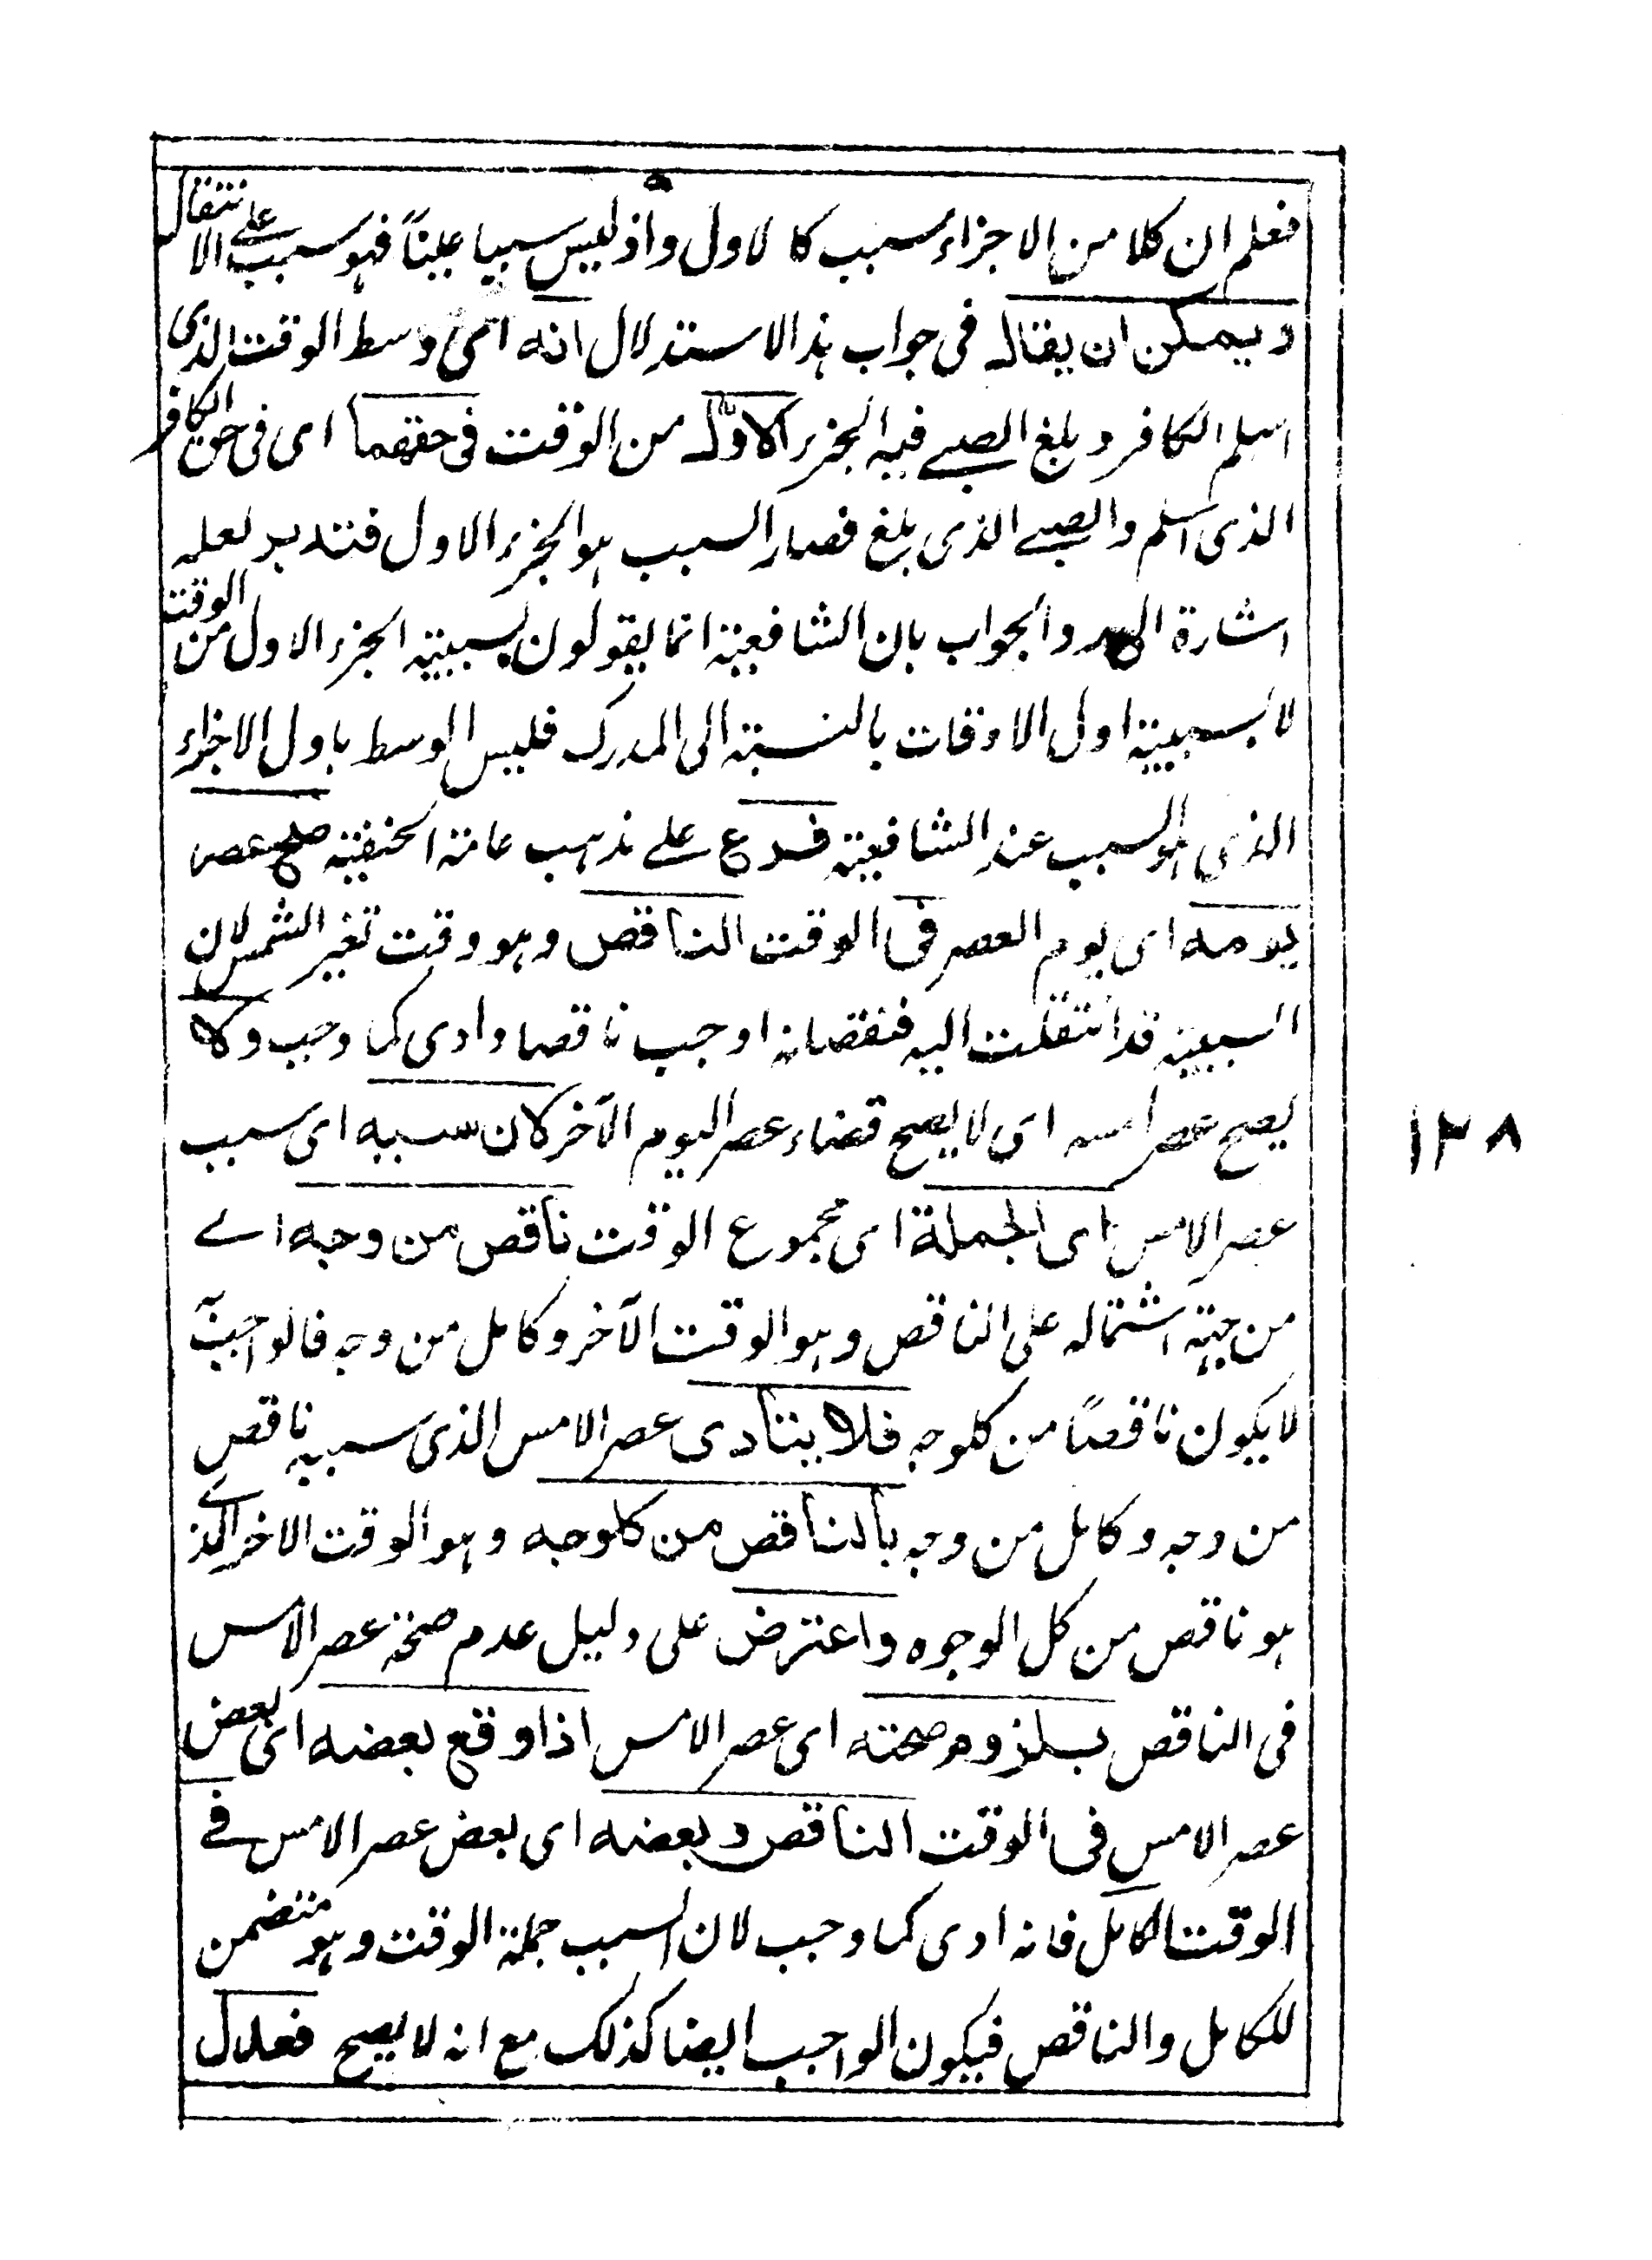 فعلم ان كلا من الاجزاء سبب كالاول واذ ليس سببا عينًا فهو سبب على الانتقال
ويمكن ان يقال في جواب هذا الاستدلال انه اى وسط الوقت الذى
اسلم الكافر و بلغ الصبي فيه الجزء الاول من الوقت في حقهما اى فى حق الكافر
الذى اسلم والصبي الذى بلغ فصار السبب هو الجزء الاول فتدبر لعله
اشارة الى والجواب بان الشافعية انما يقولون بسببية الجزء الاول من الوقت
لا بسببية اول الاوقات بالنسبة الى المدرك فليس الوسط باول الاجزاء
الذى هو السبب عند الشافعية فرع على مذهب عامة الحنفية صح عصر
يومه اى يوم العصر فى الوقت الناقص وهو وقت تغير الشمس لان
السببية قد انتقلت اليه فنقصانه اوجب ناقصا وادى كما وجب ولا
يصح عصر امسه اى لا يصح قضاء عصر اليوم الآخر كان سببه اى سبب
عصر الامس اى الجملة اى مجموع الوقت ناقص من وجه اے
من جهة اشتماله على الناقص وهو الوقت الآخر وكامل من وجه فالواجب به
لا يكون ناقصًا من كلوجه فلا يتأدى عصر الامس الذى سببه ناقص
من وجه وكامل من وجه بالناقص من كلوجه وهو الوقت الاخر الذے
هو ناقص من كل الوجوه واعترض على دليل عدم صحة عصر الامس
فى الناقص بلزوم صحته اى عصر الامس اذا وقع بعضه اى بعض
عصر الامس فى الوقت الناقص وبعضه اى بعض عصر الامس فے
الوقت الكامل فانه ادى كما وجب لان السبب جملة الوقت وهو متضمن
للكامل والناقص فيكون الواجب ايضا كذلك مع انه لا يصح فعدل
١٢٨